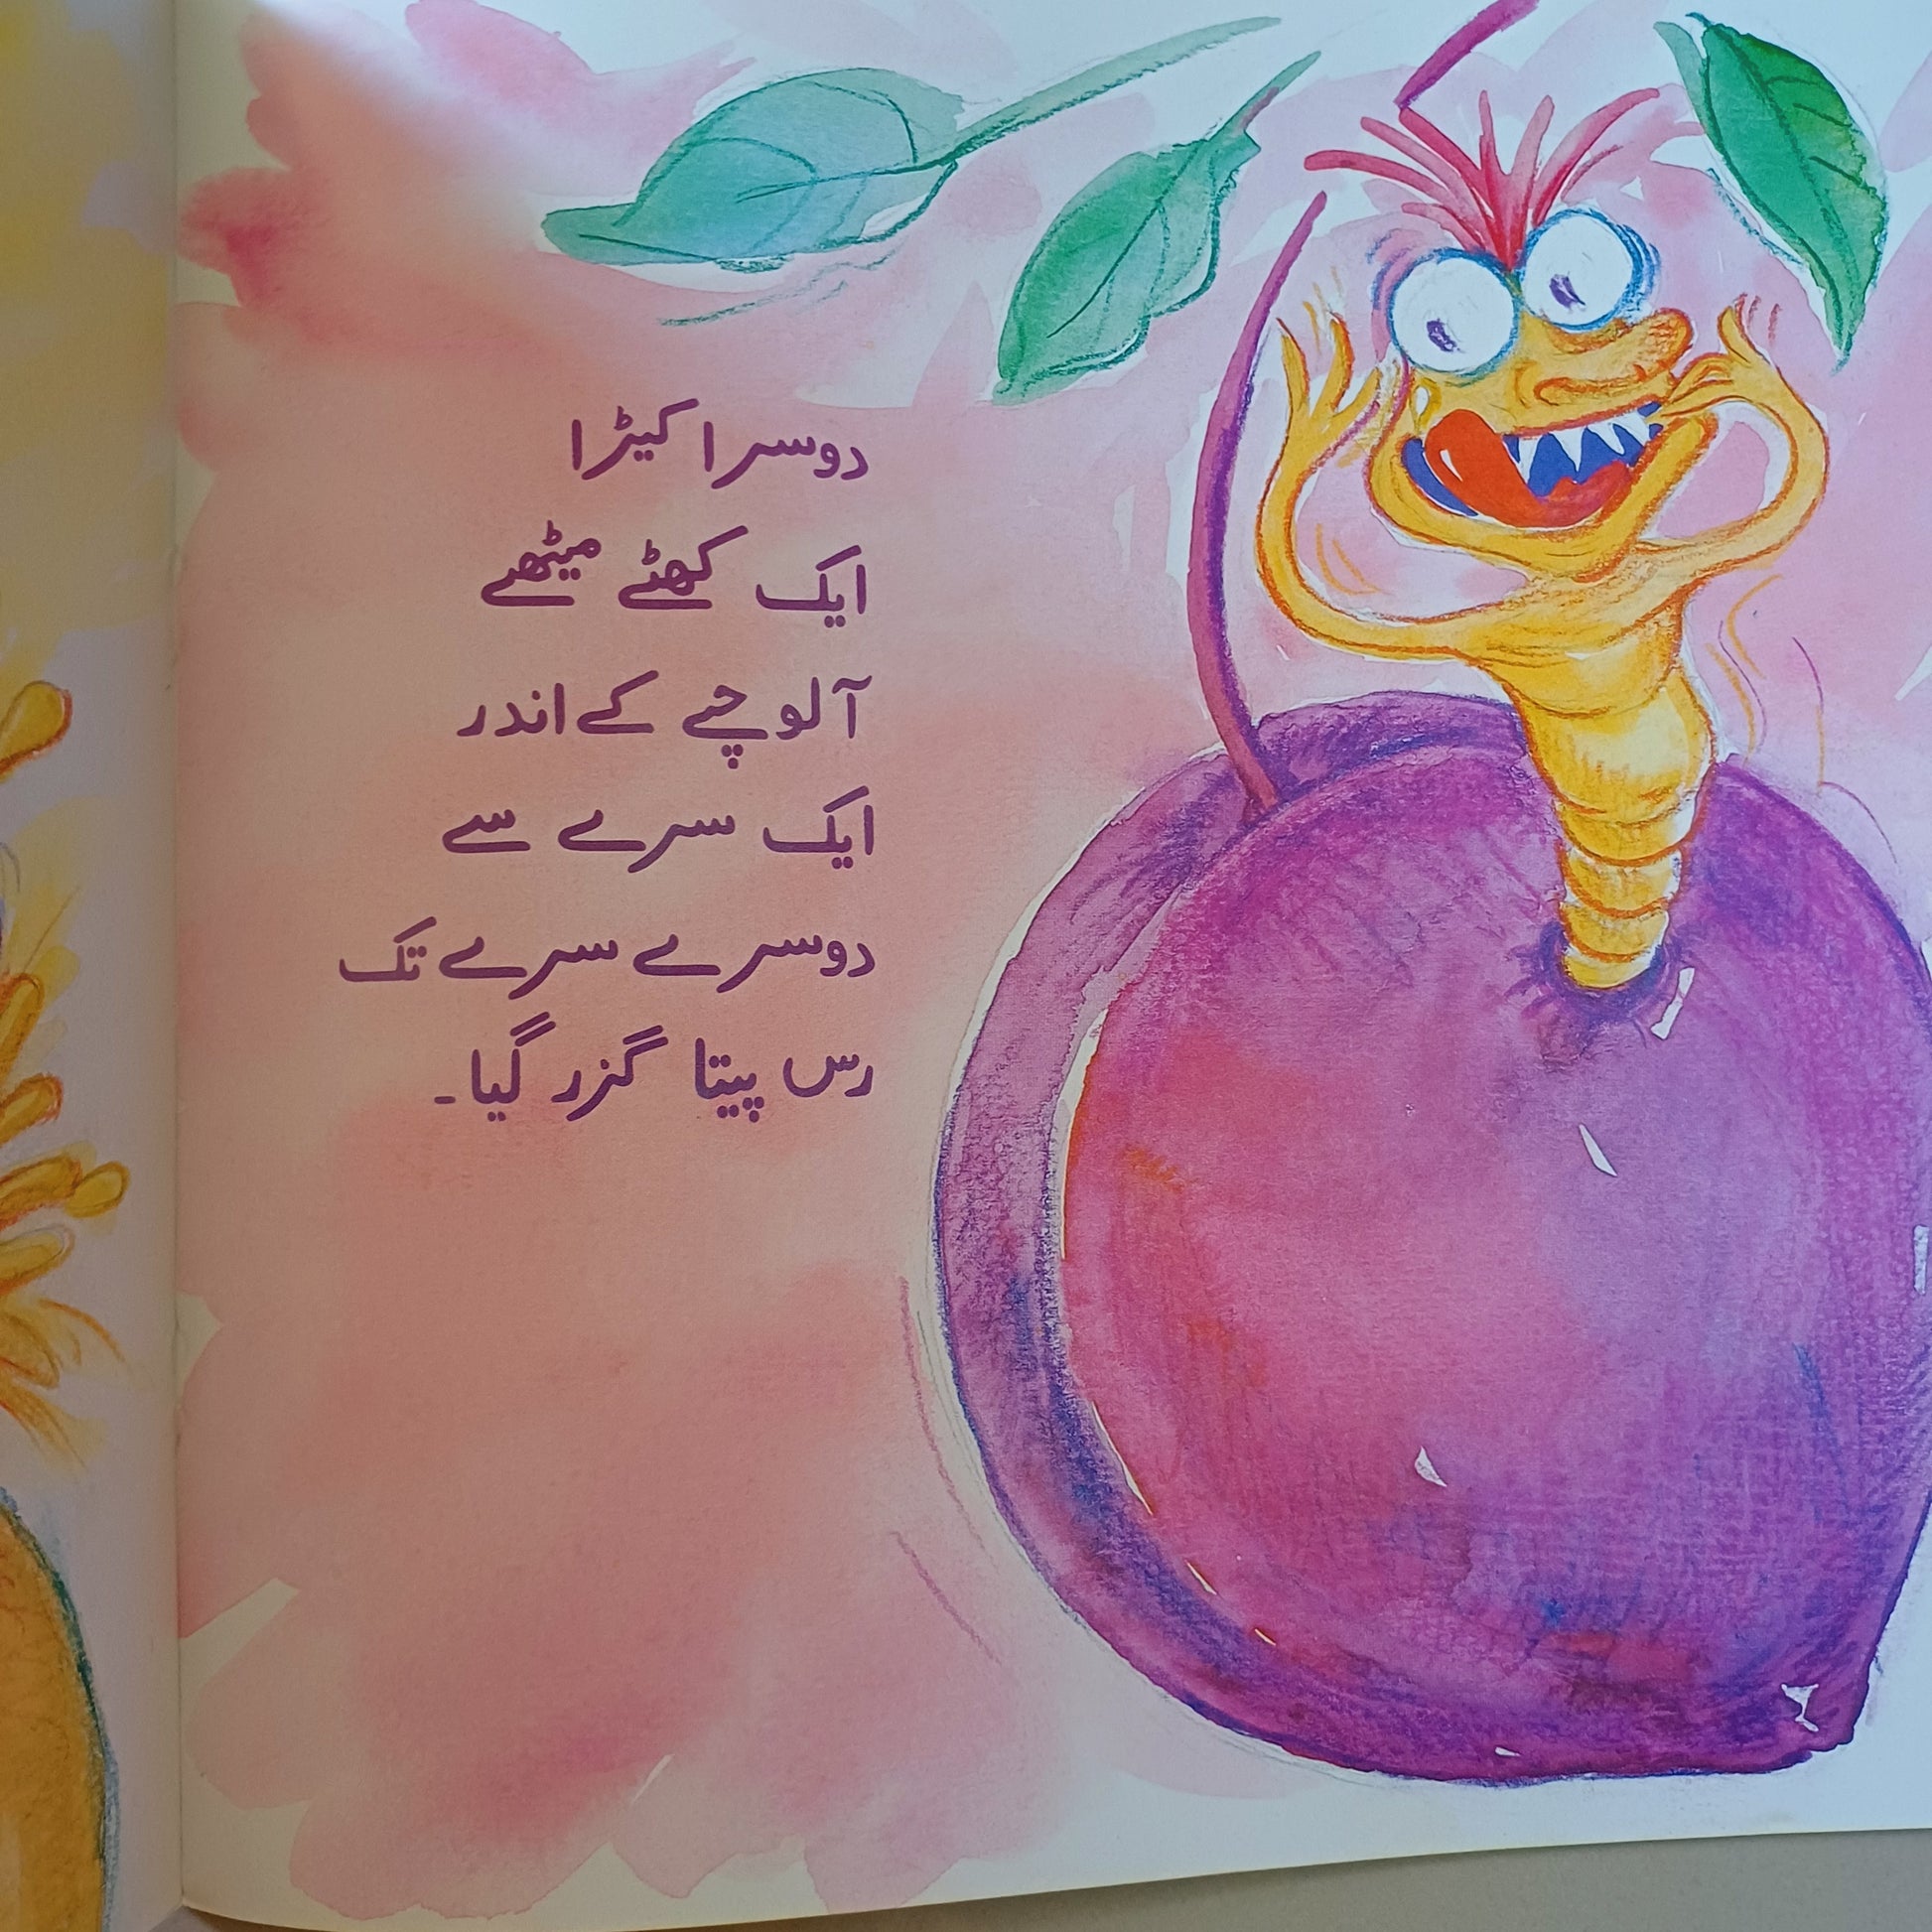 دوسرا کیڑا
ایک کھٹے میٹھے
آلوچے کے اندر
ایک سرے سے
دوسرے سرے تک
رس پیتا گزر گیا۔